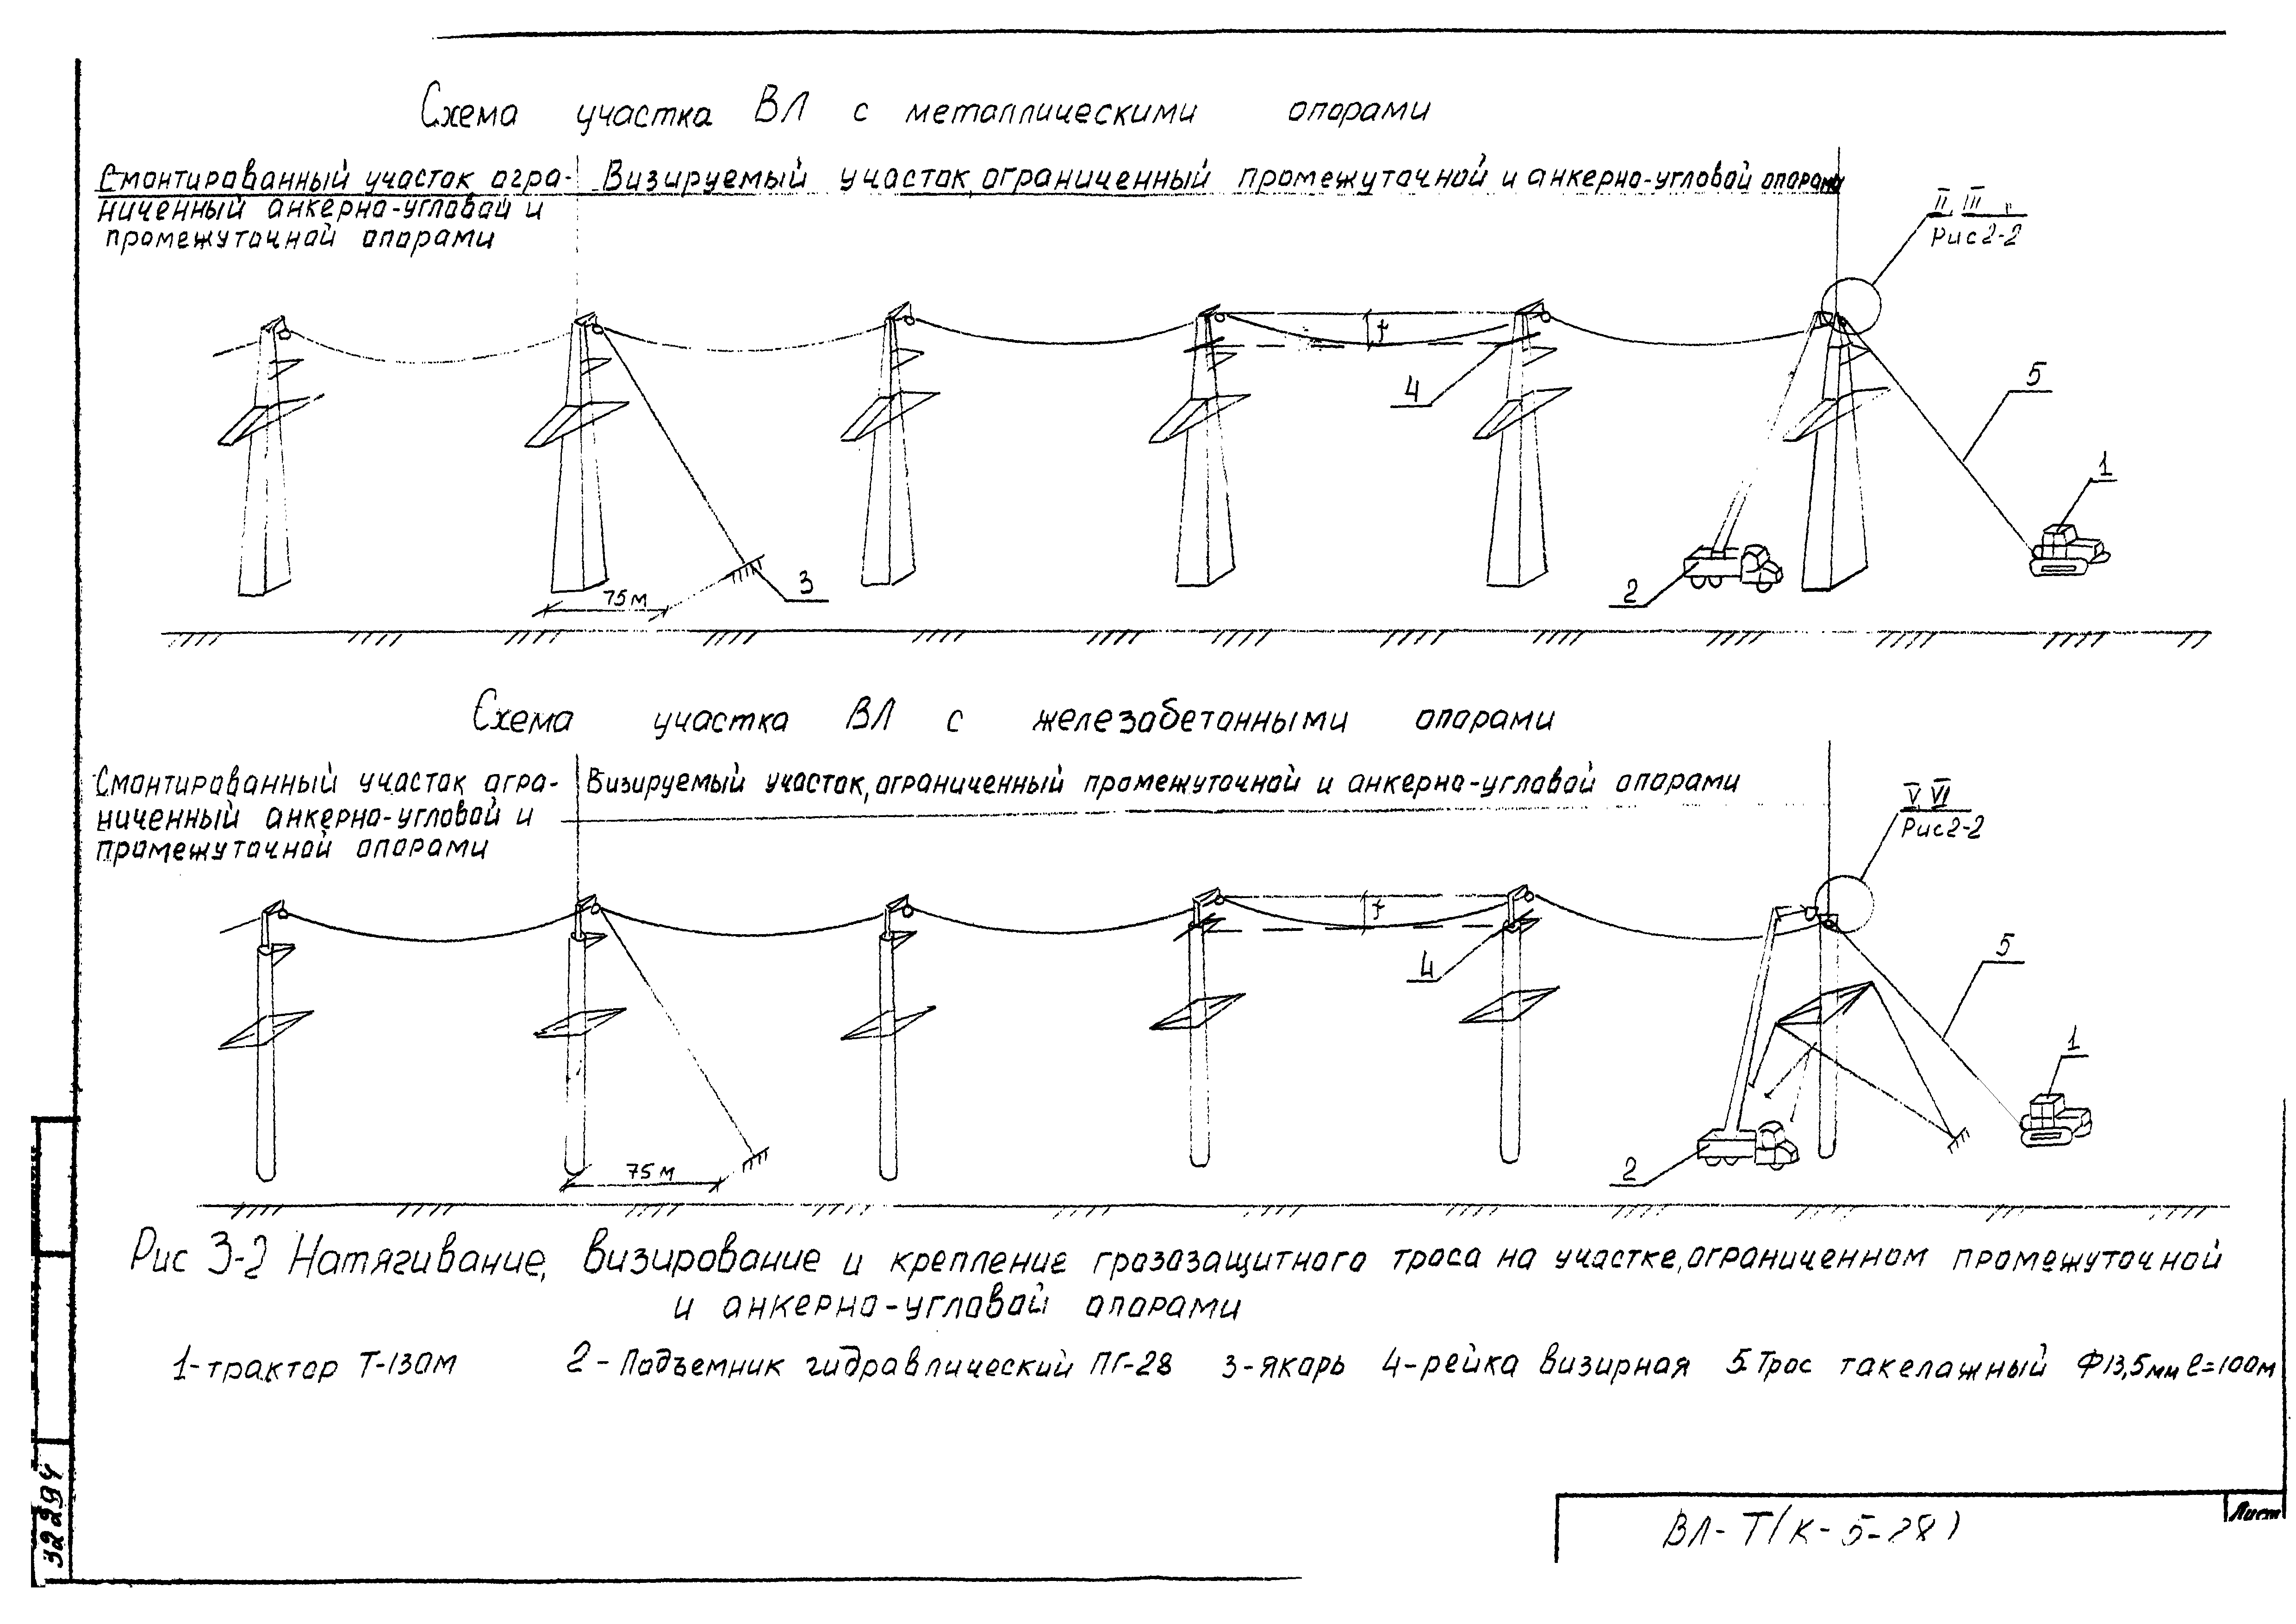 Схема участка ВЛ с металлическими опорами
Смонтированный участок огра- Визируемый участок, ограниченный промежуточной и анкерно-угловой опорами
ниченный анкерно-угловой и
промежуточной опорами
II, III
Рис 2-2
f
4
5
1
3
2
75м
Схема участка ВЛ с железобетонными опорами
Смонтированный участок огра- Визируемый участок, ограниченный промежуточной и анкерно-угловой опорами
ниченный анкерно-угловой и
промежуточной опорами
V, VI
Рис 2-2
f
4
5
1
2
75м
Рис 3-2 Натягивание, визирование и крепление грозозащитного троса на участке, ограниченном промежуточной
и анкерно-угловой опорами
1-трактор Т-130М 2-Подъемник гидравлический ПГ-28 3-якорь 4-рейка визирная 5 Трос такелажный Ф13,5мм ℓ=100м
32294
ВЛ-Т(К-5-28)
Лист